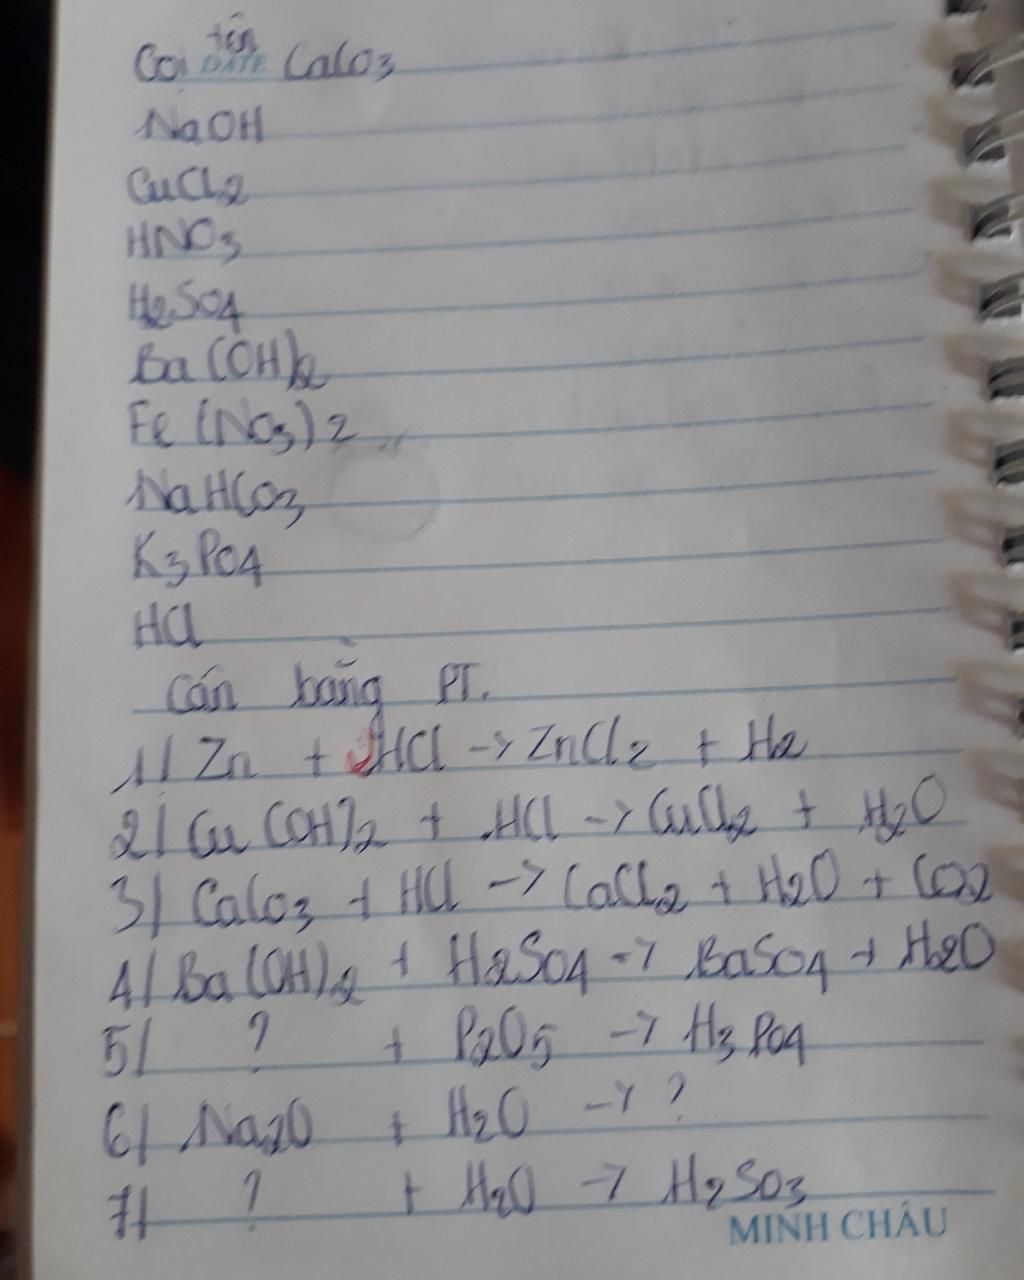 Gọi tên CaCO3
DATE
NaOH
CuCl2
HNO3
H2SO4
Ba(OH)2
Fe(NO3)2
NaHCO3
K3PO4
HCl
Cân bằng PT.
1/ Zn + HCl -> ZnCl2 + H2
2/ Cu(OH)2 + HCl -> CuCl2 + H2O
3/ CaCO3 + HCl -> CaCl2 + H2O + CO2
4/ Ba(OH)2 + H2SO4 -> BaSO4 + H2O
5/ ? + P2O5 -> H3PO4
6/ Na2O + H2O -> ?
7/ ? + H2O -> H2SO3
MINH CHÂU